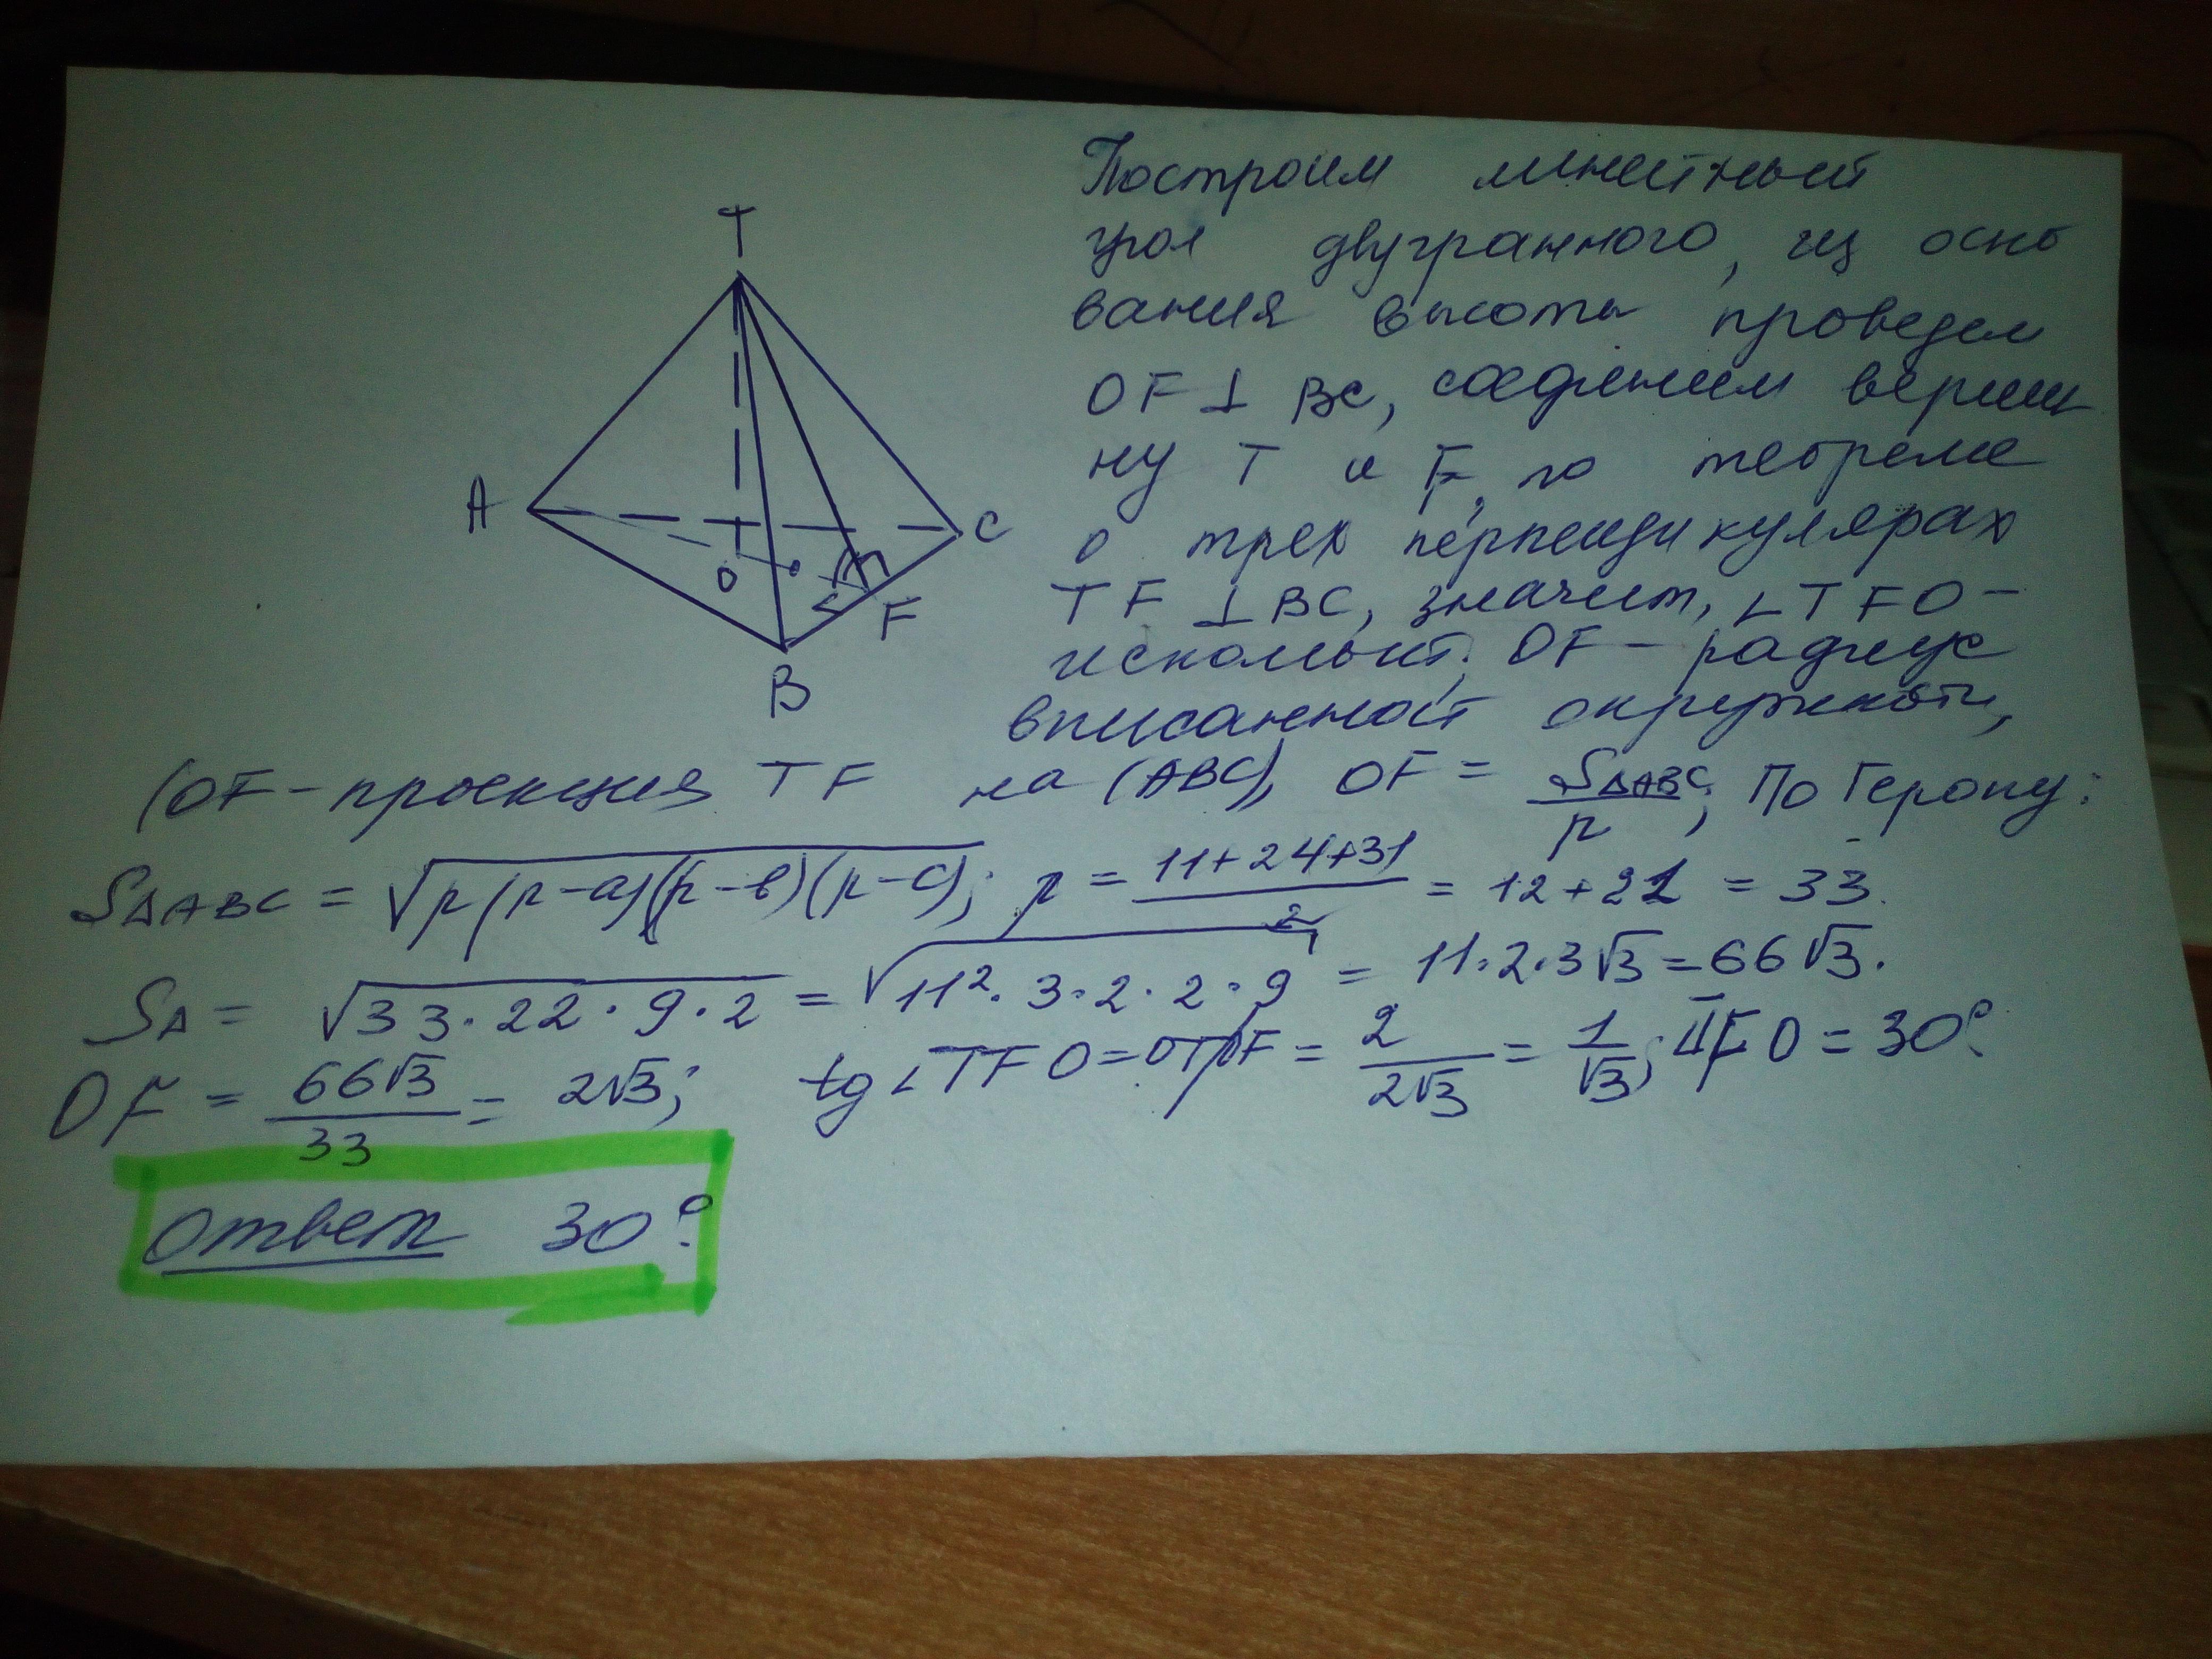 T
A
C
O
F
B
Построим линейный
угол двугранного, из осно
вания высоты проведем
OF ⊥ BC, соединим верши
ну T и F, по теореме
о трех перпендикулярах
TF ⊥ BC, значит, ∠TFO –
искомый. OF – радиус
вписанной окружности,
(OF – проекция TF на (ABC), OF = S△ABC/p; По Герону:
S△ABC = √p(p-a)(p-b)(p-c); p = (11+24+31)/2 = 12+21 = 33.
S△ = √33·22·9·2 = √11²·3·2·2·9 = 11·2·3√3 = 66√3.
OF = 66√3/33 = 2√3; tg∠TFO = = 2/2√3 = 1/√3; = 30°.
Ответ 30°